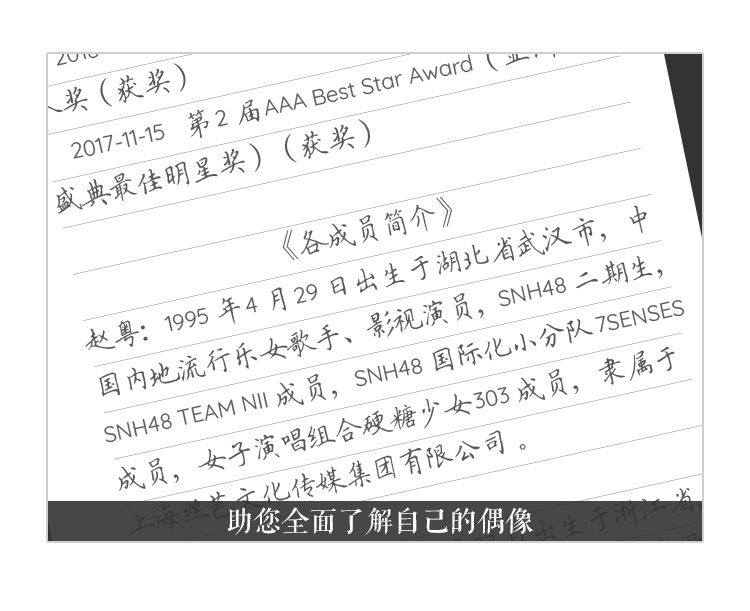 奖（获奖）
2017-11-15 第2届AAA Best Star Award（亚
盛典最佳明星奖）（获奖）
《各成员简介》
赵粤：1995年4月29日出生于湖北省武汉市，中
国内地流行乐女歌手、影视演员，SNH48二期生，
SNH48 TEAM NII成员，SNH48国际化小分队7SENSES
成员，女子演唱组合硬糖少女303成员，隶属于
上海丝芭文化传媒集团有限公司。
日出生于浙江省
助您全面了解自己的偶像